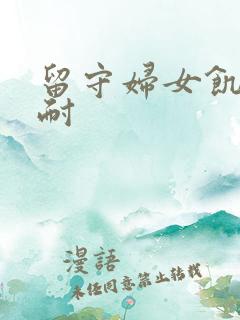 留守婦女飢
耐
漫語
未任同意禁止转载